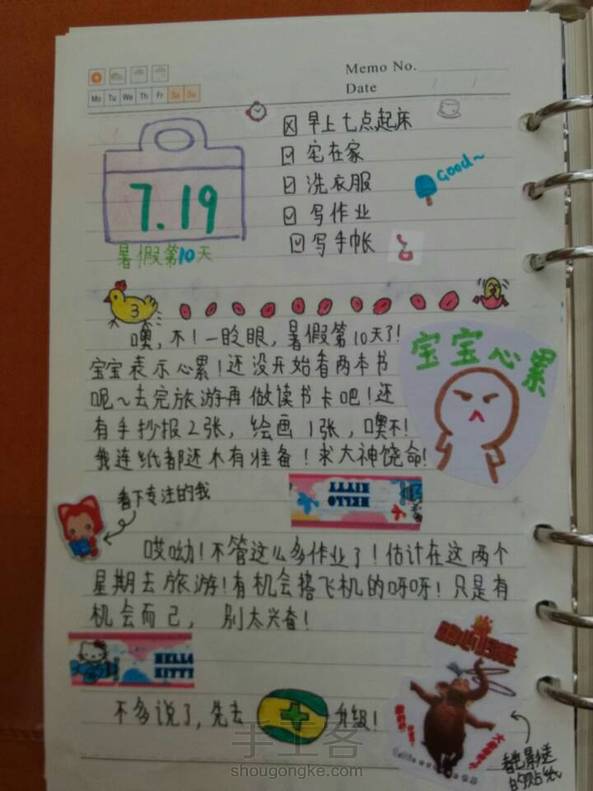 Memo No.
Date
Mo Tu We Th Fr Sa Su
早上七点起床
宅在家
洗衣服
Good~
写作业
写手帐
7.19
暑假第10天
噢,不!一眨眼,暑假第10天了!
宝宝表示心累!还没开始看两本书
呢~去完旅游再做读书卡吧!还
有手抄报2张,绘画1张,噢不!
我连纸都还木有准备!求大神饶命!
宝宝心累
看下专注的我
HELLO
KITTY
哎呦!不管这么多作业了!估计在这两个
星期去旅游!有机会搭飞机的呀呀!只是有
机会而已,别太兴奋!
HELLO
KITTY
不多说了,先去
升级!
手工客
shougongke.com